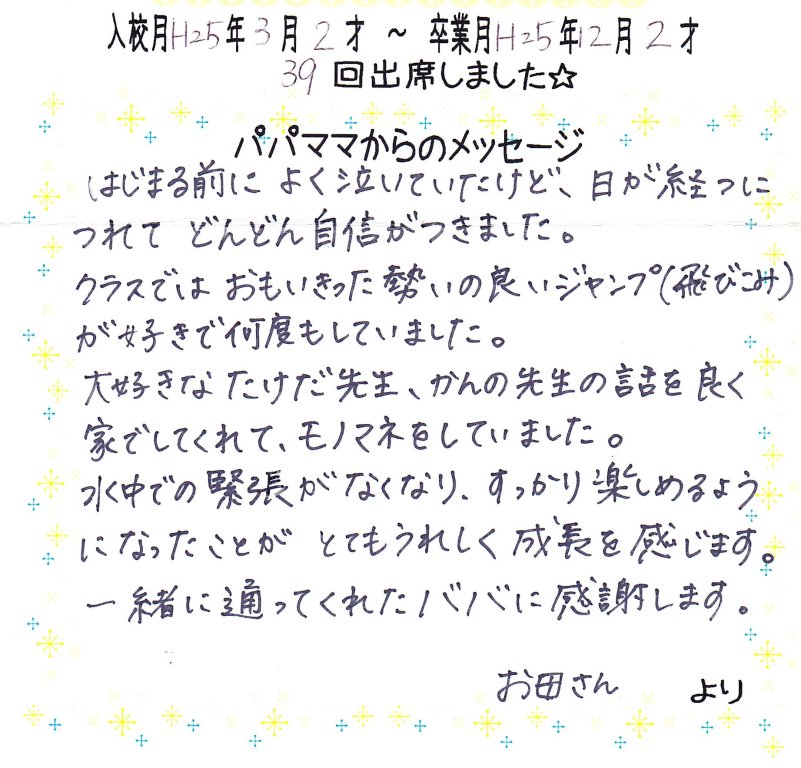 入校月H25年3月2才 ~ 卒業月H25年12月2才
39回出席しました☆
パパママからのメッセージ
はじまる前に よく泣いていたけど、日が経つに
つれて どんどん自信がつきました。
クラスでは おもいきった勢いの良いジャンプ(飛びこみ)
が好きで何度もしていました。
大好きな たけだ先生、かんの先生の話を良く
家でしてくれて、モノマネをしていました。
水中での緊張がなくなり、すっかり楽しめるよう
になったことが とてもうれしく成長を感じます。
一緒に通ってくれたババに感謝します。
お田さん より